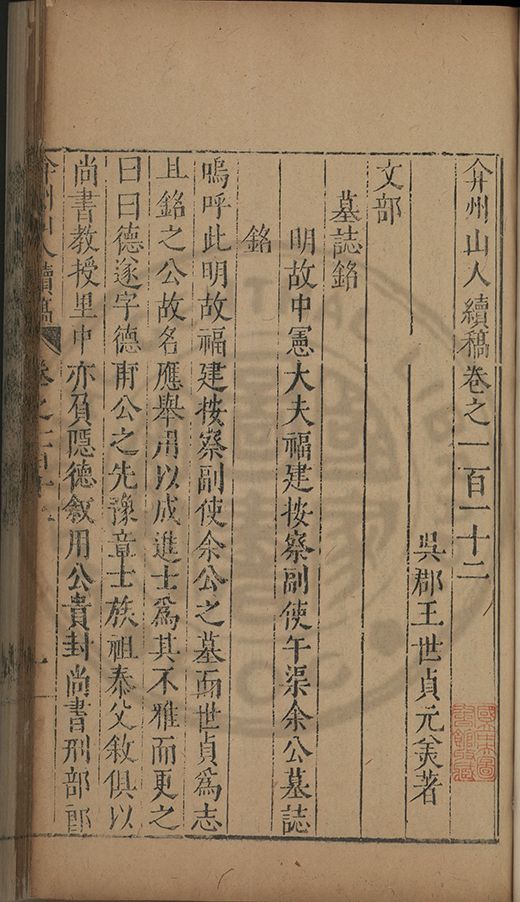 弇州山人續稿卷之一百一十二
吳郡王世貞元美著
文部
墓誌銘
明故中憲大夫福建按察副使午渠余公墓誌
銘
嗚呼此明故福建按察副使余公之墓而世貞爲志
且銘之公故名應舉用以成進士爲其不雅而更之
曰曰德遂字德甫公之先豫章士族祖泰父敘俱以
尚書教授里中亦負隱德敘用公貴封尚書刑部郎
弇州山人續稿
卷之一百十二
一